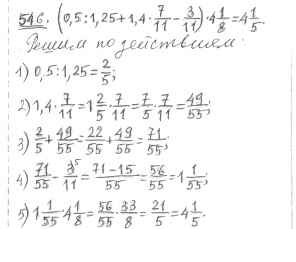 546. (0,5:1,25+1,4·7/11−3/11)·4 1/8=4 1/5.
Решим по действиям:
1) 0,5:1,25=2/5;
2) 1,4·7/11=1 2/5·7/11=7/5·7/11=49/55;
3) 2/5+49/55=22/55+49/55=71/55;
4) 71/55−3/11⁵=71−15/55=56/55=1 1/55;
5) 1 1/55·4 1/8=56/55·33/8=21/5=4 1/5.